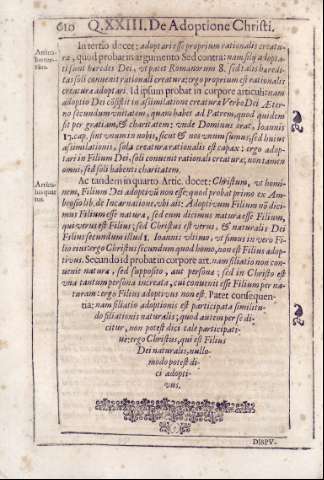 610 Q. XXIII. De Adoptione Christi.
In tertio docet: adoptari esse proprium rationalis creatu-
ra, quod probat in argumento Sed contra: nam filij adopta-
ti sunt heredes Dei, ut patet Romanorum 8. sed talis haredi-
tas soli convenit rationali creatura: ergo proprium est rationalis
creatura adoptari. Id ipsum probat in corpore articuli: nam
adoptio Dei cõsistit in assimilatione creatura Verbo Dei Æter-
no secundum unitatem, quam habet ad Patrem, quod quidem
fit per gratiam, & charitatem; unde Dominus orat, Ioannis
17. cap. sint unum in nobis, sicut & nos unum sumus; sed huius
assimilationis, sola creatura rationalis est capax: ergo adop-
tari in Filium Dei, soli convenit rationali creatura; non tamen
omni, sed soli habenti charitatem.
Ac tandem in quarto Artic. docet: Christum, ut homi-
nem, Filium Dei adoptivũ non esse: quod probat primo ex Am-
brosio lib. de Incarnatione, ubi ait: Adoptivum Filium nõ dici-
mus Filium esse natura, sed eum dicimus natura esse Filium,
qui verus est Filius; sed Christus est verus, & naturalis Dei
Filius secundum illud 1. Ioannis ultimo, ut simus in vero Fi-
lio eius: ergo Christus secundum quod homo, non est Filius adop-
tivus. Secundo id probat in corpore art. nam filiatio non con-
venit natura, sed supposito, aut persona; sed in Christo est
una tantum persona increata, cui convenit esse Filium per na-
turam: ergo Filius adoptivus non est. Patet consequen-
tia: nam filiatio adoptionis est participata similitu-
do filiationis naturalis; quod autem per se di-
citur, non potest dici tale participati-
ve: ergo Christus, qui est Filius
Dei naturalis, nullo-
modo potest di-
ci adopti-
vus.
DISPV-